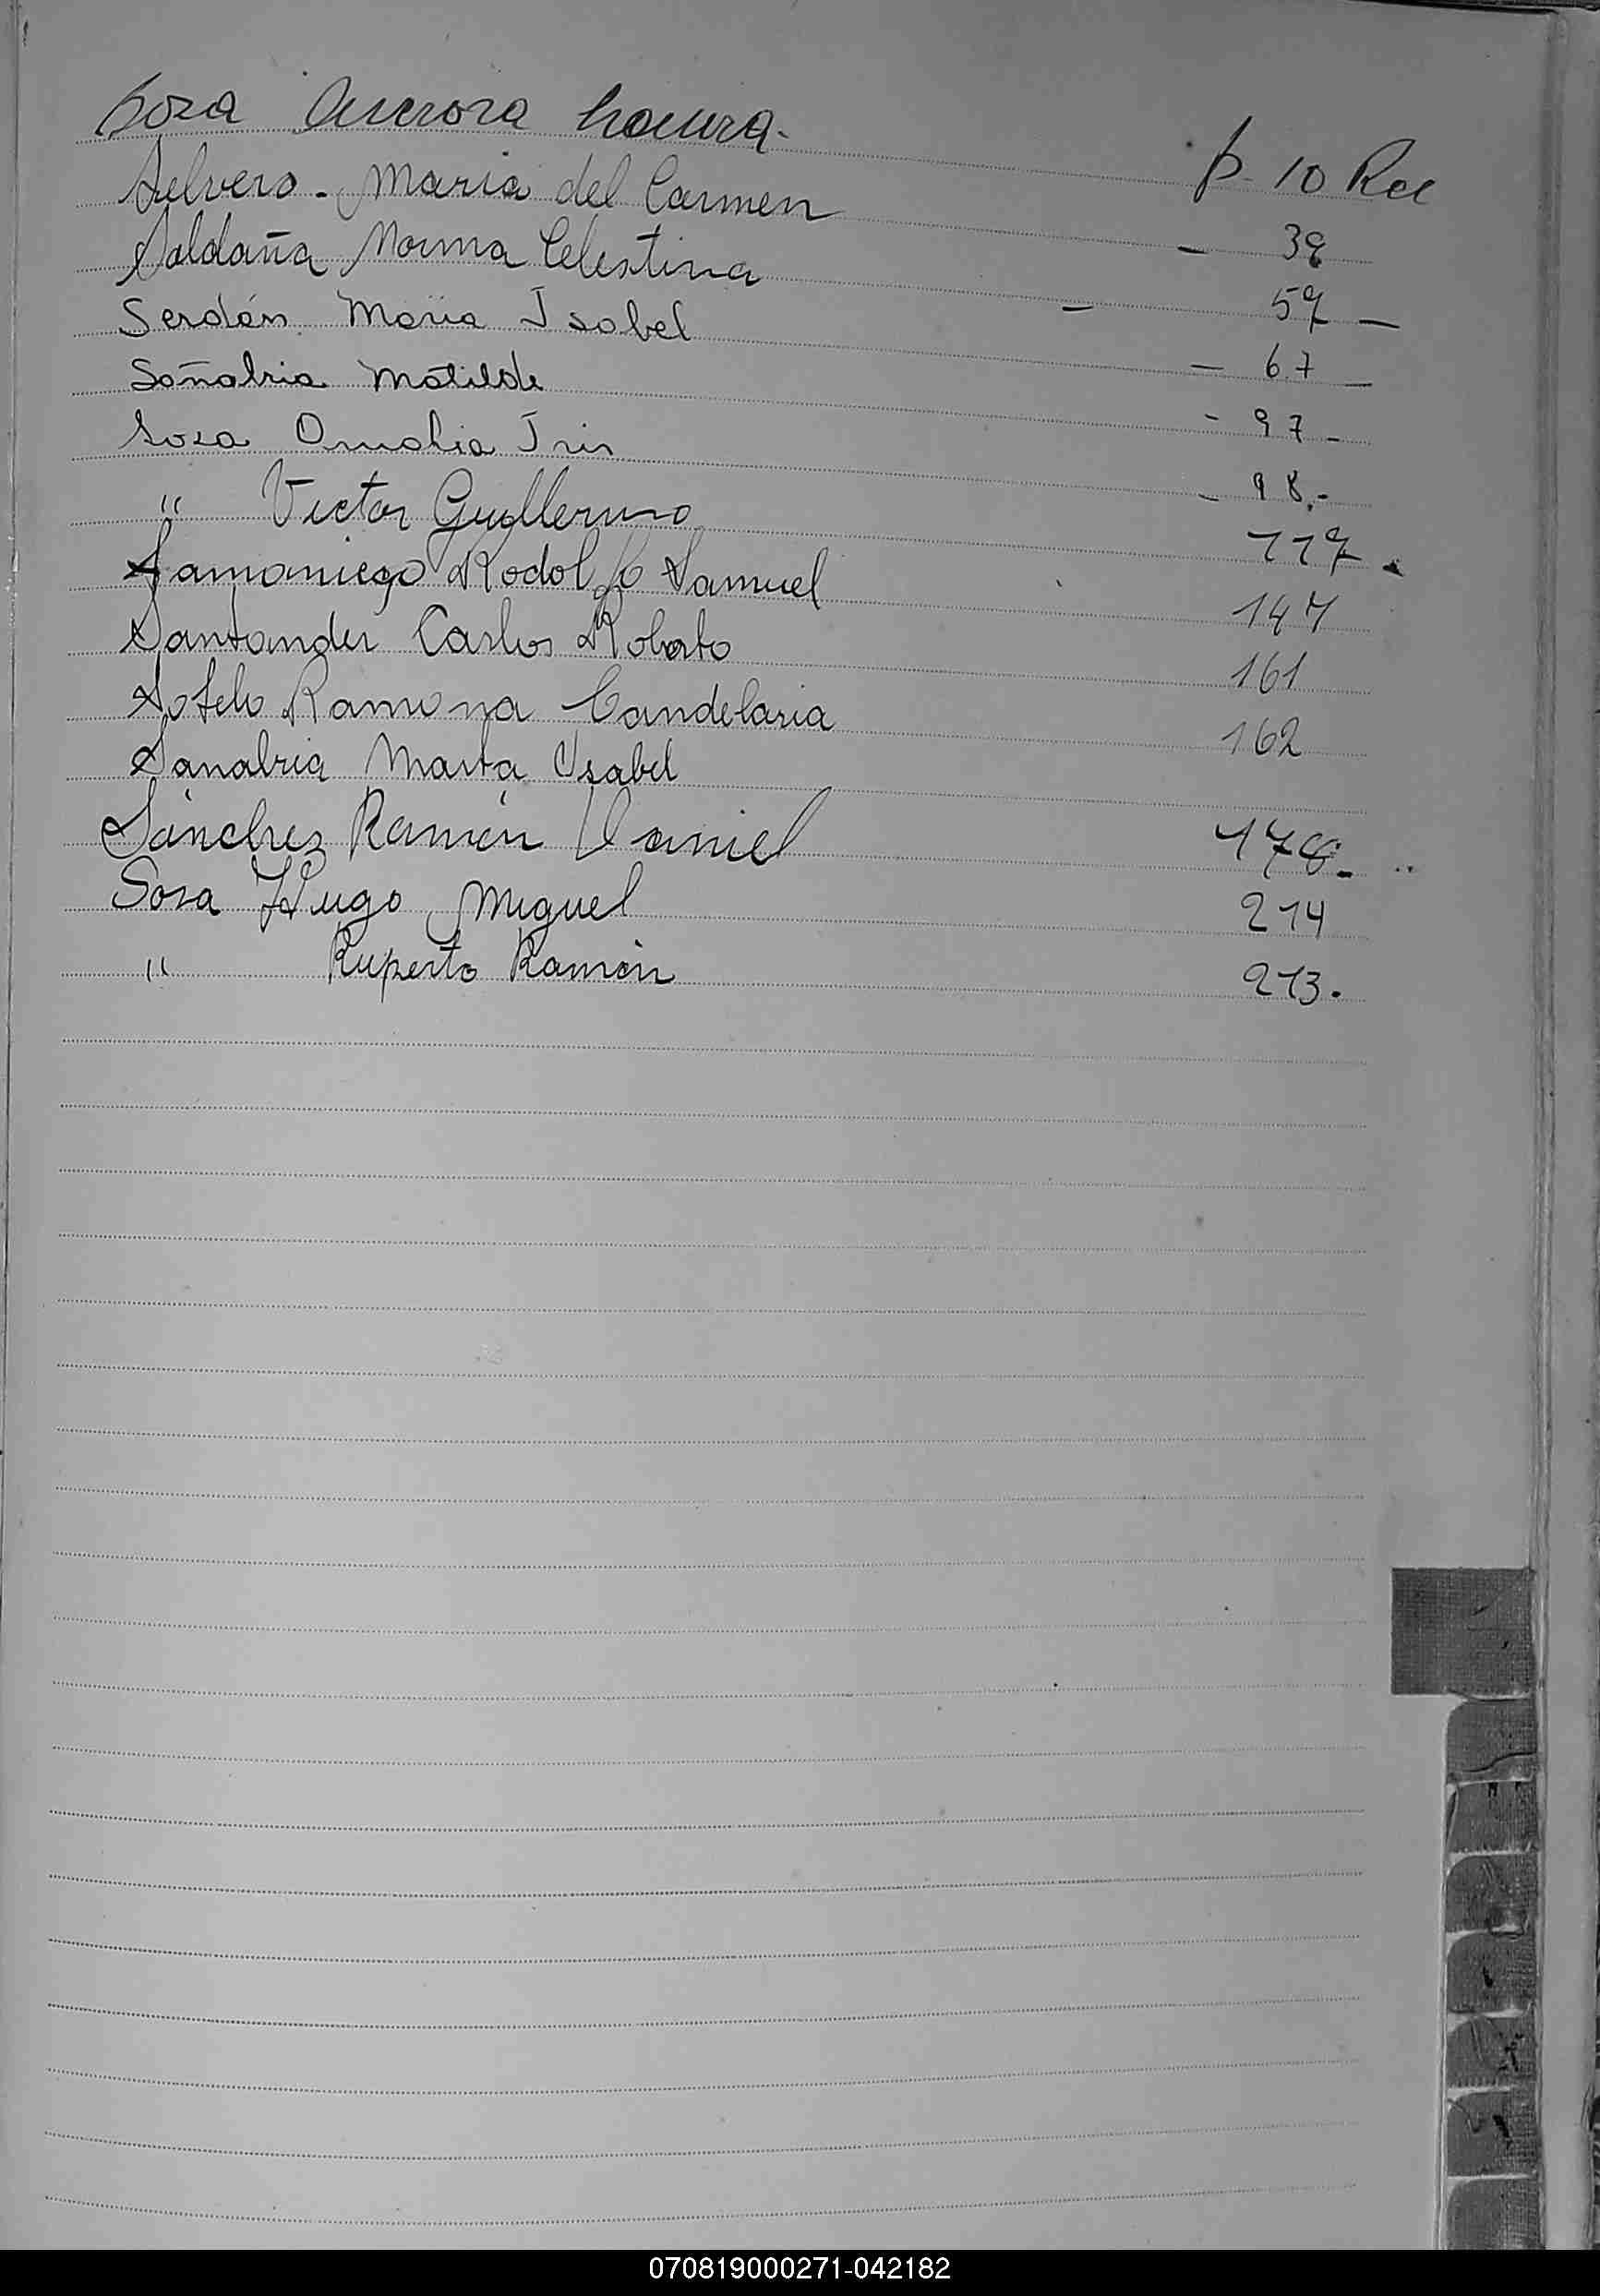 Sosa Aurora Laura. p. 10 Rec
Silvero - Maria del Carmen - 39
Saldaña Norma Celestina - 59 -
Serdán María Isabel - 67 -
Sañabria Matilde - 97 -
Sosa Amalia Iris - 98.-
" Victor Guillermo 117.
Samaniego Rodolfo Samuel 147
Santander Carlos Roberto 161
Sotelo Ramona Candelaria 162
Sanabria Marta Isabel
Sánchez Ramón Daniel 178.
Sosa Hugo Miguel 214
" Ruperto Ramón 213.
070819000271-042182